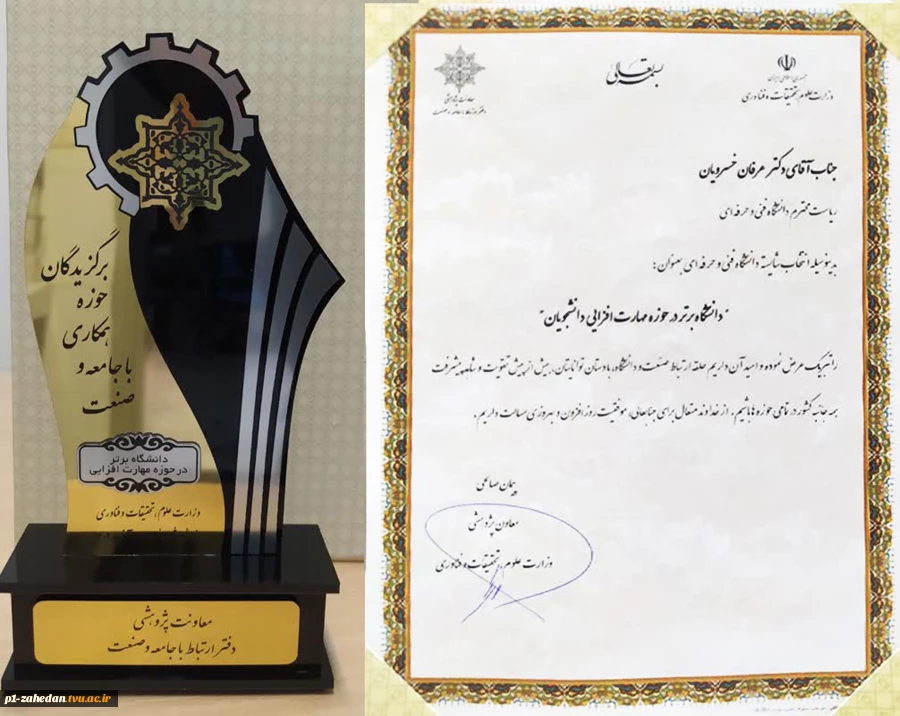 برگزیدگان
حوزه
همکاری
با جامعه و
صنعت
دانشگاه برتر
در حوزه مهارت افزایی
وزارت علوم، تحقیقات و فناوری
معاونت پژوهشی
دفتر ارتباط با جامعه و صنعت
p1-zahedan.tvu.ac.ir
بسمه تعالی
جمهوری اسلامی ایران
وزارت علوم، تحقیقات و فناوری
معاونت پژوهشی
دفتر ارتباط با جامعه و صنعت
جناب آقای دکتر عرفان خسرویان
ریاست محترم دانشگاه فنی و حرفه ای
بدینوسیله انتخاب شایسته دانشگاه فنی و حرفه ای بعنوان:
"دانشگاه برتر در حوزه مهارت افزایی دانشجویان"
را تبریک عرض نموده و امید آن داریم حلقه ارتباط صنعت و دانشگاه، با دستان توانایتان، بیش از پیش تقویت و شاهد پیشرفت
همه جانبه کشور در تمامی حوزه ها باشیم. از خداوند متعال برای جنابعالی، موفقیت روز افزون و بهروزی مسالت داریم.
پیمان صالحی
معاون پژوهشی
وزارت علوم، تحقیقات و فناوری